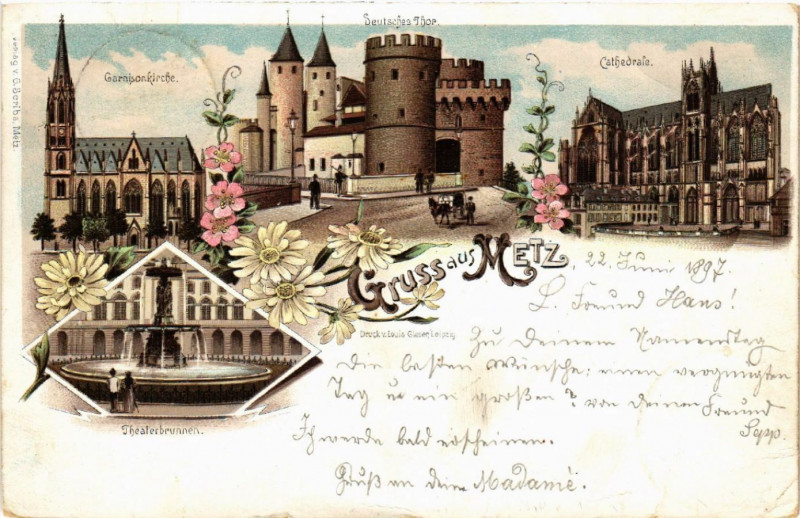 Deutsches Thor.
Garnisonkirche.
Cathedrale.
Verlag v. G. Scriba, Metz.
Gruss aus METZ
, 22. Juni 1897.
L. Freund Hans!
Druck v. Louis Glaser, Leipzig.
Zu Deinem Namenstag
die besten Wünsche: einen vergnügten
Tag u ein großen ? von deinem Freund
Sepp.
Theaterbrunnen.
Ich werde bald erscheinen.
Gruß an deine Madame.